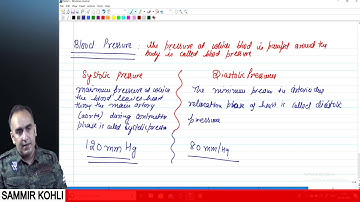 Blood Pressure : The pressure at which blood is pumped around the
body is called blood pressure
Systolic pressure
maximum pressure at which
the blood leaves heart
through the main artery
(aorta) during contraction
phase is called systolic pressure
120 mm Hg
Diastolic Pressure
The minimum pressure in arteries during
relaxation phase of heart is called diastolic
pressure
80 mm/Hg
SAMMIR KOHLI